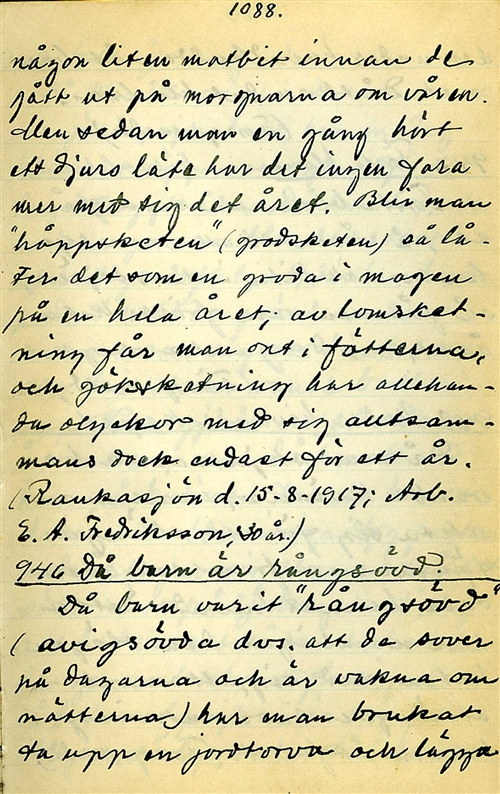 1088.
någon liten matbit innan de
gått ut på morgnarna om våren.
Men sedan man en gång hört
ett djurs läte har det ingen fara
mer med sig det året. Blir man
"håppsketen" (grodsketen) så lå-
ter det som en groda i magen
på en hela året; av lomsket-
ning får man ont i fötterna,
och göksketning har allehan-
da olyckor med sig alltsam-
mans dock endast för ett år.
(Raukasjön d. 15-8-1917; Arb.
E. A. Fredriksson, 30 år.)
946 Då barn är rångsövd.
Då barn varit "rångsövd"
(avigsövda dvs. att de sover
på dagarna och är vakna om
nätterna) har man brukat
ta upp en jordtorva och lägga